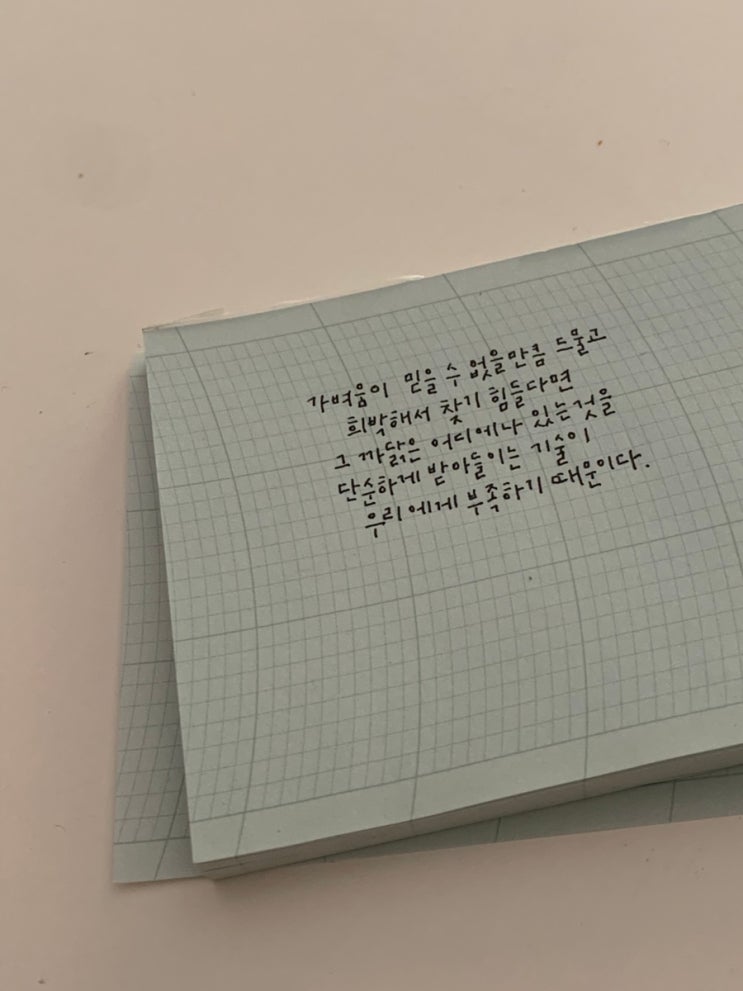 가벼움이 믿을 수 없을만큼 드물고
희박해서 찾기 힘들다면
그 까닭은 어디에나 있는것을
단순하게 받아들이는 기술이
우리에게 부족하기 때문이다.